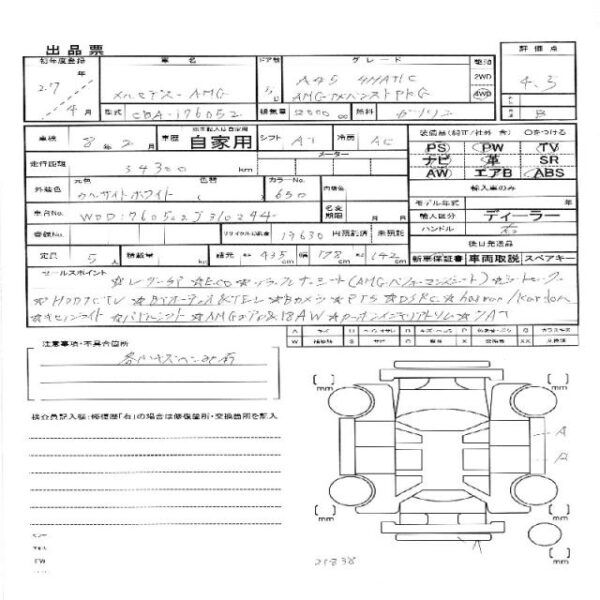 出品票
初年度登録 車名 ドア数 グレード 駆動 評価点
27年 メルセデス-AMG 5 A45 4MATIC 2WD 4.5
4月 AMGアドバンストPKG 4WD B
型式 CBA-176052 排気量 2000 cc 燃料 ガソリン
車検 8年2月 車歴 自家用 シフト AT 冷房 AC
装備品(純正/社外 含) ○をつける
PS PW TV
走行距離 34300 km メーター
ナビ 革 SR
AW エアB ABS
元色 色替 カラーNo. 内装色
外装色 カルサイトホワイト ( ) 650
輸入車のみ
車台No. WDD1760522J310244 名変期限 月
モデル年式 年
輸入区分 ディーラー
ハンドル 右
登録No. リサイクル預託金 17630 円 預託済 未預託
後日発送品
定員 5人 積載量 kg 諸元 長 435 cm 幅 178 cm 高 142 cm
新車保証書 車両取説 スペアキー
セールスポイント
☆レーダーSP ☆ECO ☆ (AMGパフォーマンスシート) ☆シートヒーター
☆HDDナビTV ☆BTオーディオ&TEL ☆Bカメラ ☆PTS ☆DSRC ☆harman/kardon
☆キセノンライト ☆パドルシフト ☆AMGエアロ&18AW ☆カーボンインテリアトリム ☆7AT
注意事項・不具合箇所
検査員記入欄:修復歴「有」の場合は修復箇所・交換箇所を記入
A
A
A
mm
mm
mm
mm
mm
21838